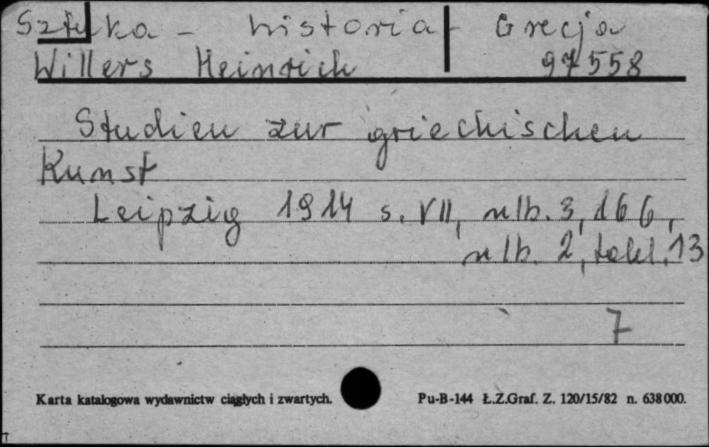 Sztuka - historia - Grecja
Willers Heinrich 97558
Studien zur griechischen
Kunst
Leipzig 1914 s. VII, nlb. 3, 166,
nlb. 2, tabl. 13
7
Karta katalogowa wydawnictw ciągłych i zwartych. Pu-B-144 Ł.Z.Graf. Z. 120/15/82 n. 638000.